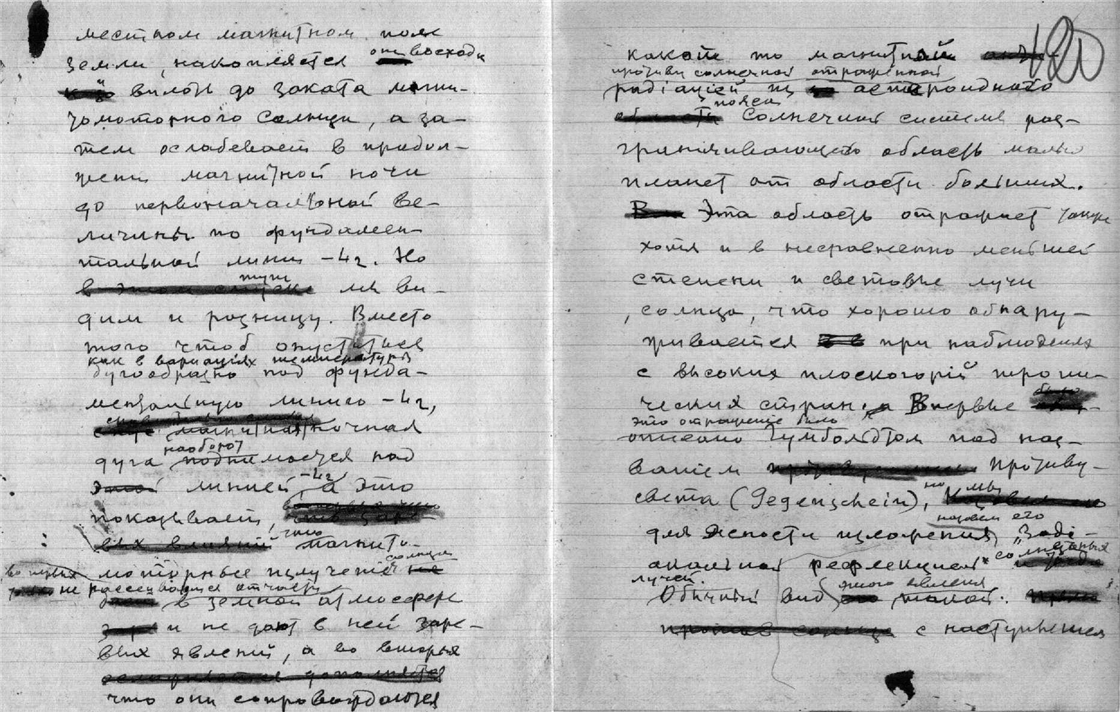 местном магнитном поле
Земли, накопляется от восхода
вплоть до заката магни-
томоторного Солнца, а за-
тем ослабевает в продол-
жении магнитной ночи
до первоначальной ве-
личины по фундамен-
тальной линии -42. Но
тут
мы ви-
дим и разницу. Вместо
того чтоб опуститься
как в вариациях температуры
дугообразно под фунда-
ментальную линию -42,
ночная
наоборот
дуга поднимается над
линией -42, а это
показывает,
что магнито-
солнца
моторные излучения
во первых
не рассеиваются отчасти
в земной атмосфере
и не дают в ней заре-
вых явлений, а во вторых
что они сопровождаются
480
какой то магнитной
противусолнечной отраженной
радіаціей из астероидного
пояса
Солнечной системы раз-
граничивающего область малых
планет от области больших.
Эта область отражает также
хотя и в несравненно меньшей
степени и световые лучи
солнца, что хорошо обнару-
живается при наблюдения
с высоких плоскогорій тропи-
ческих стран. Впервые было
это отражение было
описано Гумбольдтом под наз-
ваніем Противу-
света (Gegenschein), но мы
назовем его
для ясности изложения „Зоді-
акальной рефлекціей" солнечных
лучей.
этого явления
Обычный вид такой:
с наступлением